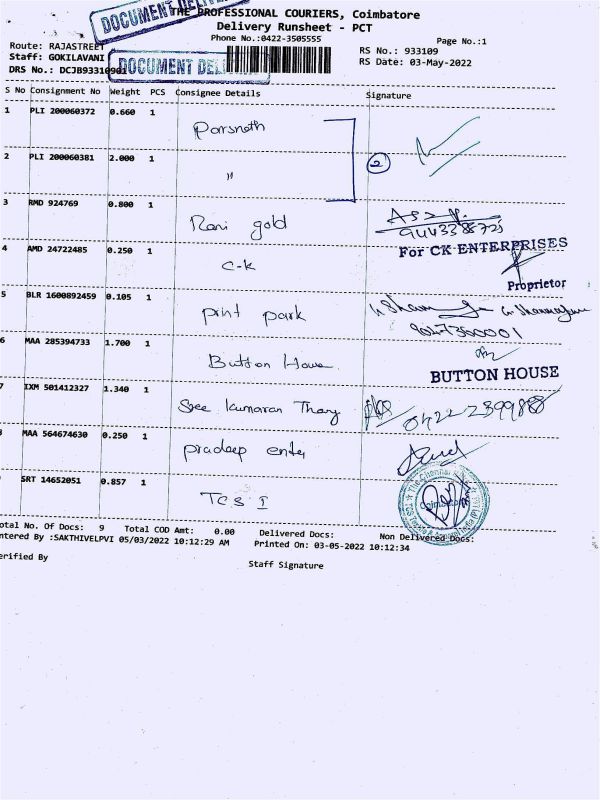 THE PROFESSIONAL COURIERS, Coimbatore
Delivery Runsheet - PCT
Phone No.:0422-3505555
Page No.:1
Route: RAJASTREET
Staff: GOKILAVANI
RS No.: 933109
RS Date: 03-May-2022
DOCUMENT
DOCUMENT DEL
S No Consignment No Weight PCS Consignee Details Signature
1 PLI 200060372 0.660 1 Parsnath
2 PLI 200060381 2.000 1 " 2
3 RMD 924769 0.800 1 Rani gold
For CK ENTERPRISES
4 AMD 24722485 0.250 1 C-K
Proprietor
5 BLR 1600892459 0.105 1 print park
6 MAA 285394733 1.700 1 Button House
BUTTON HOUSE
7 IXM 501412327 1.340 1 Sree Kumaran Thang
MAA 564674630 0.250 1 pradeep enter
SRT 14652051 0.857 1 TCS I
otal No. Of Docs: 9 Total COD Amt: 0.00 Delivered Docs: Non Delivered Docs:
ntered By :SAKTHIVELPVI 05/03/2022 10:12:29 AM Printed On: 03-05-2022 10:12:34
erified By
Staff Signature